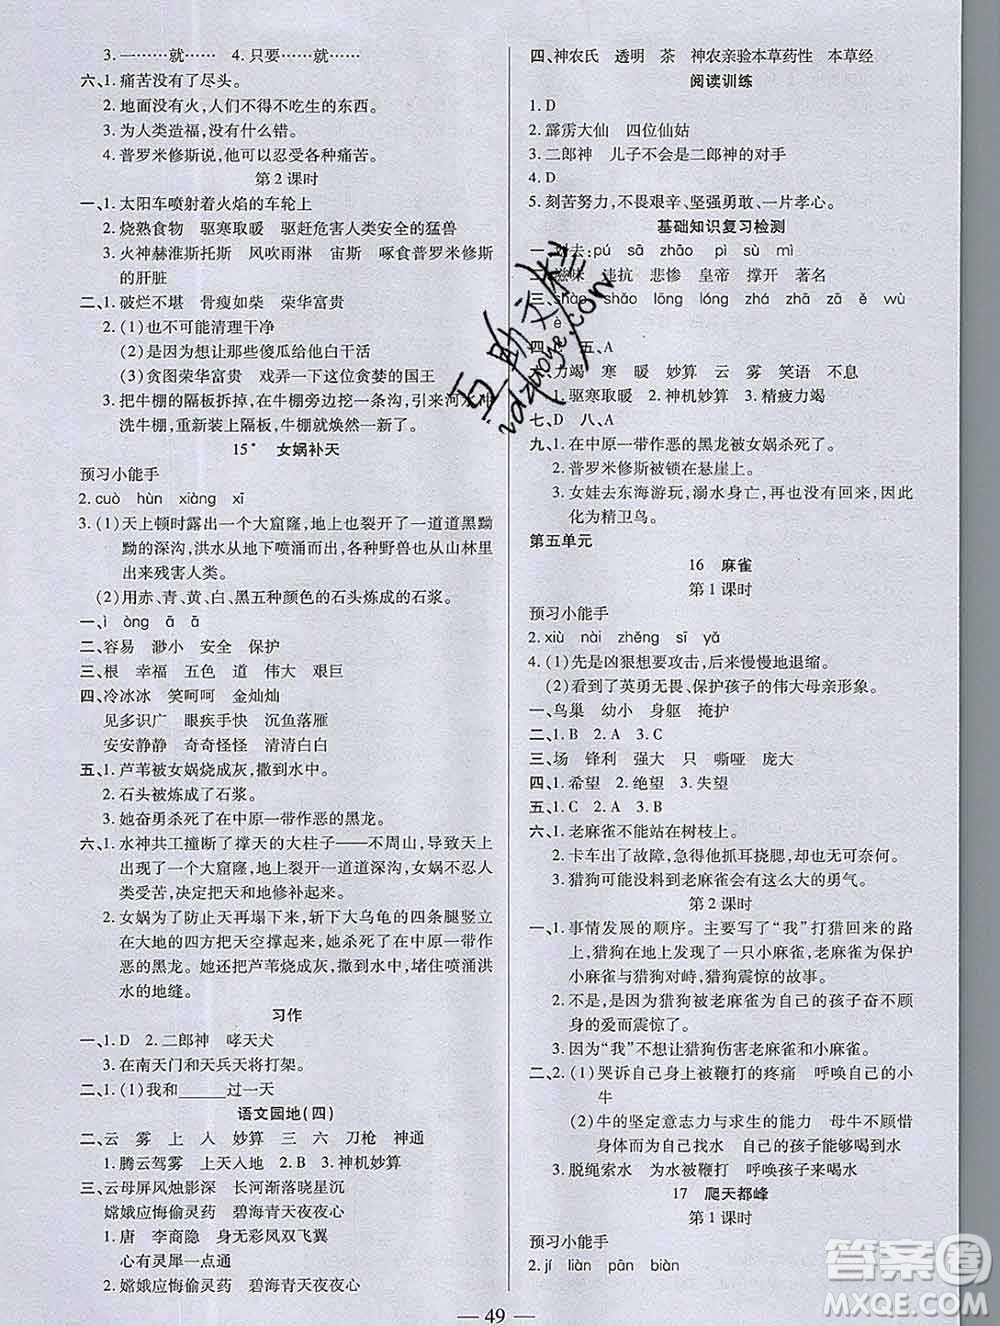 3. 一……就……　4. 只要……就……
六、1. 痛苦没有了尽头。
2. 地面没有火,人们不得不吃生的东西。
3. 为人类造福,没有什么错。
4. 普罗米修斯说,他可以忍受各种痛苦。
第 2 课时
一、1. 太阳车喷射着火焰的车轮上
2. 烧熟食物　驱寒取暖　驱赶危害人类安全的猛兽
3. 火神赫淮斯托斯　风吹雨淋　宙斯　啄食普罗米修斯
的肝脏
二、1. 破烂不堪　骨瘦如柴　荣华富贵
2. (1)也不可能清理干净
(2)是因为想让那些傻瓜给我白干活
(3)贪图荣华富贵　戏弄一下这位贪婪的国王
3. 把牛棚的隔板拆掉,在牛棚旁边挖一条沟,引来河水冲
洗牛棚,重新装上隔板,牛棚焕然一新。
15* 女娲补天
预习小能手
2. cuò　hùn　xiàng　xī
3. (1)天上顿时露出一个大窟窿,地上也裂开了一道道黑黝
黝的深沟,洪水从地下喷涌而出,各种野兽也从山林里
出来残害人类。
(2)用赤、青、黄、白、黑五种颜色的石头炼成的石浆。
一、ì　òng　ā　ā
二、容易　渺小　安全　保护
三、根　幸福　五色　道　伟大　艰巨
四、冷冰冰　笑呵呵　金灿灿
见多识广　眼疾手快　沉鱼落雁
安安静静　奇奇怪怪　清清白白
五、1. 芦苇被女娲烧成灰,撒到水中。
2. 石头被炼成了石浆。
3. 她奋勇杀死了在中原一带作恶的黑龙。
六、1. 水神共工撞断了撑天的大柱子——不周山,导致天上
出现了一个大窟窿,地上裂开一道道深沟,女娲不忍人
类受苦,决定把天和地修补起来。
2. 女娲为了防止天再塌下来,斩下大乌龟的四条腿竖立
在大地的四方把天空撑起来,她杀死了在中原一带作恶
的黑龙。她还把芦苇烧成灰,撒到水中,堵住喷涌洪
水的地缝。
习作
一、1. D　2. 二郎神　哮天犬
3. 在南天门和天兵天将打架。
二、1. (1)我和______过一天
语文园地(四)
二、云　雾　上　入　妙算　三　六　刀枪　神通
1. 腾云驾雾　上天入地　2. B　3. 神机妙算
三、云母屏风烛影深　长河渐落晓星沉
嫦娥应悔偷灵药　碧海青天夜夜心
1. 唐　李商隐　身无彩凤双飞翼
心有灵犀一点通
2. 嫦娥应悔偷灵药　碧海青天夜夜心
四、神农氏　透明　茶　神农亲验本草药性　本草经
阅读训练
1. D
2. 霹雳大仙　四位仙姑
3. 二郎神　儿子不会是二郎神的对手
4. D
5. 刻苦努力、不畏艰辛、坚强勇敢、一片孝心。
基础知识复习检测
一、划去: pú　sā　zhāo　pì　sù　mì
二、滋味　违抗　悲惨　皇帝　撑开　著名
三、shào　shāo　lōng　lóng　zhá　zhā　zhāo　wù
è
四、　五、A
六、力竭　寒　暖　妙算　云　雾　笑语　不息
1. 驱寒取暖　2. 神机妙算　3. 精疲力竭
七、D　八、A
九、1. 在中原一带作恶的黑龙被女娲杀死了。
2. 普罗米修斯被锁在悬崖上。
3. 女娃去东海游玩,溺水身亡,再也没有回来,因此
化为精卫鸟。
第五单元
16　麻雀
第 1 课时
预习小能手
2. xiù　nài　zhěng　sī　yǎ
4. (1)先是凶狠想要攻击,后来慢慢地退缩。
(2)看到了英勇无畏、保护孩子的伟大母亲形象。
一、鸟巢　幼小　身躯　掩护
二、1. B　2. A　3. C
三、场　锋利　强大　只　嘶哑　庞大
四、1. 希望　2. 绝望　3. 失望
五、1. C　2. A　3. B
六、1. 老麻雀不能站在树枝上。
2. 卡车出了故障,急得他抓耳挠腮,却也无可奈何。
3. 猎狗可能没料到老麻雀会有这么大的勇气。
第 2 课时
一、1. 事情发展的顺序。主要写了“我”打猎回来的路
上,猎狗在地上发现了一只小麻雀,老麻雀为保护
小麻雀与猎狗对峙,猎狗震惊的故事。
2. 不是,是因为猎狗被老麻雀为自己的孩子奋不顾
身的爱而震惊了。
3. 因为“我”不想让猎狗伤害老麻雀和小麻雀。
二、2. (1)哭诉自己被鞭打的疼痛　呼唤自己的小
牛
(2)牛的坚定意志力与求生的能力　母牛不顾惜
身体而为自己找水　自己的孩子能够喝到水
3. 脱绳索水　为水被鞭打　呼唤孩子喝水
17　爬天都峰
第 1 课时
预习小能手
2. jí　liàn　pān　biàn
— 49 —
互助文档
idzuoye.com
答案圈
MXQE.COM